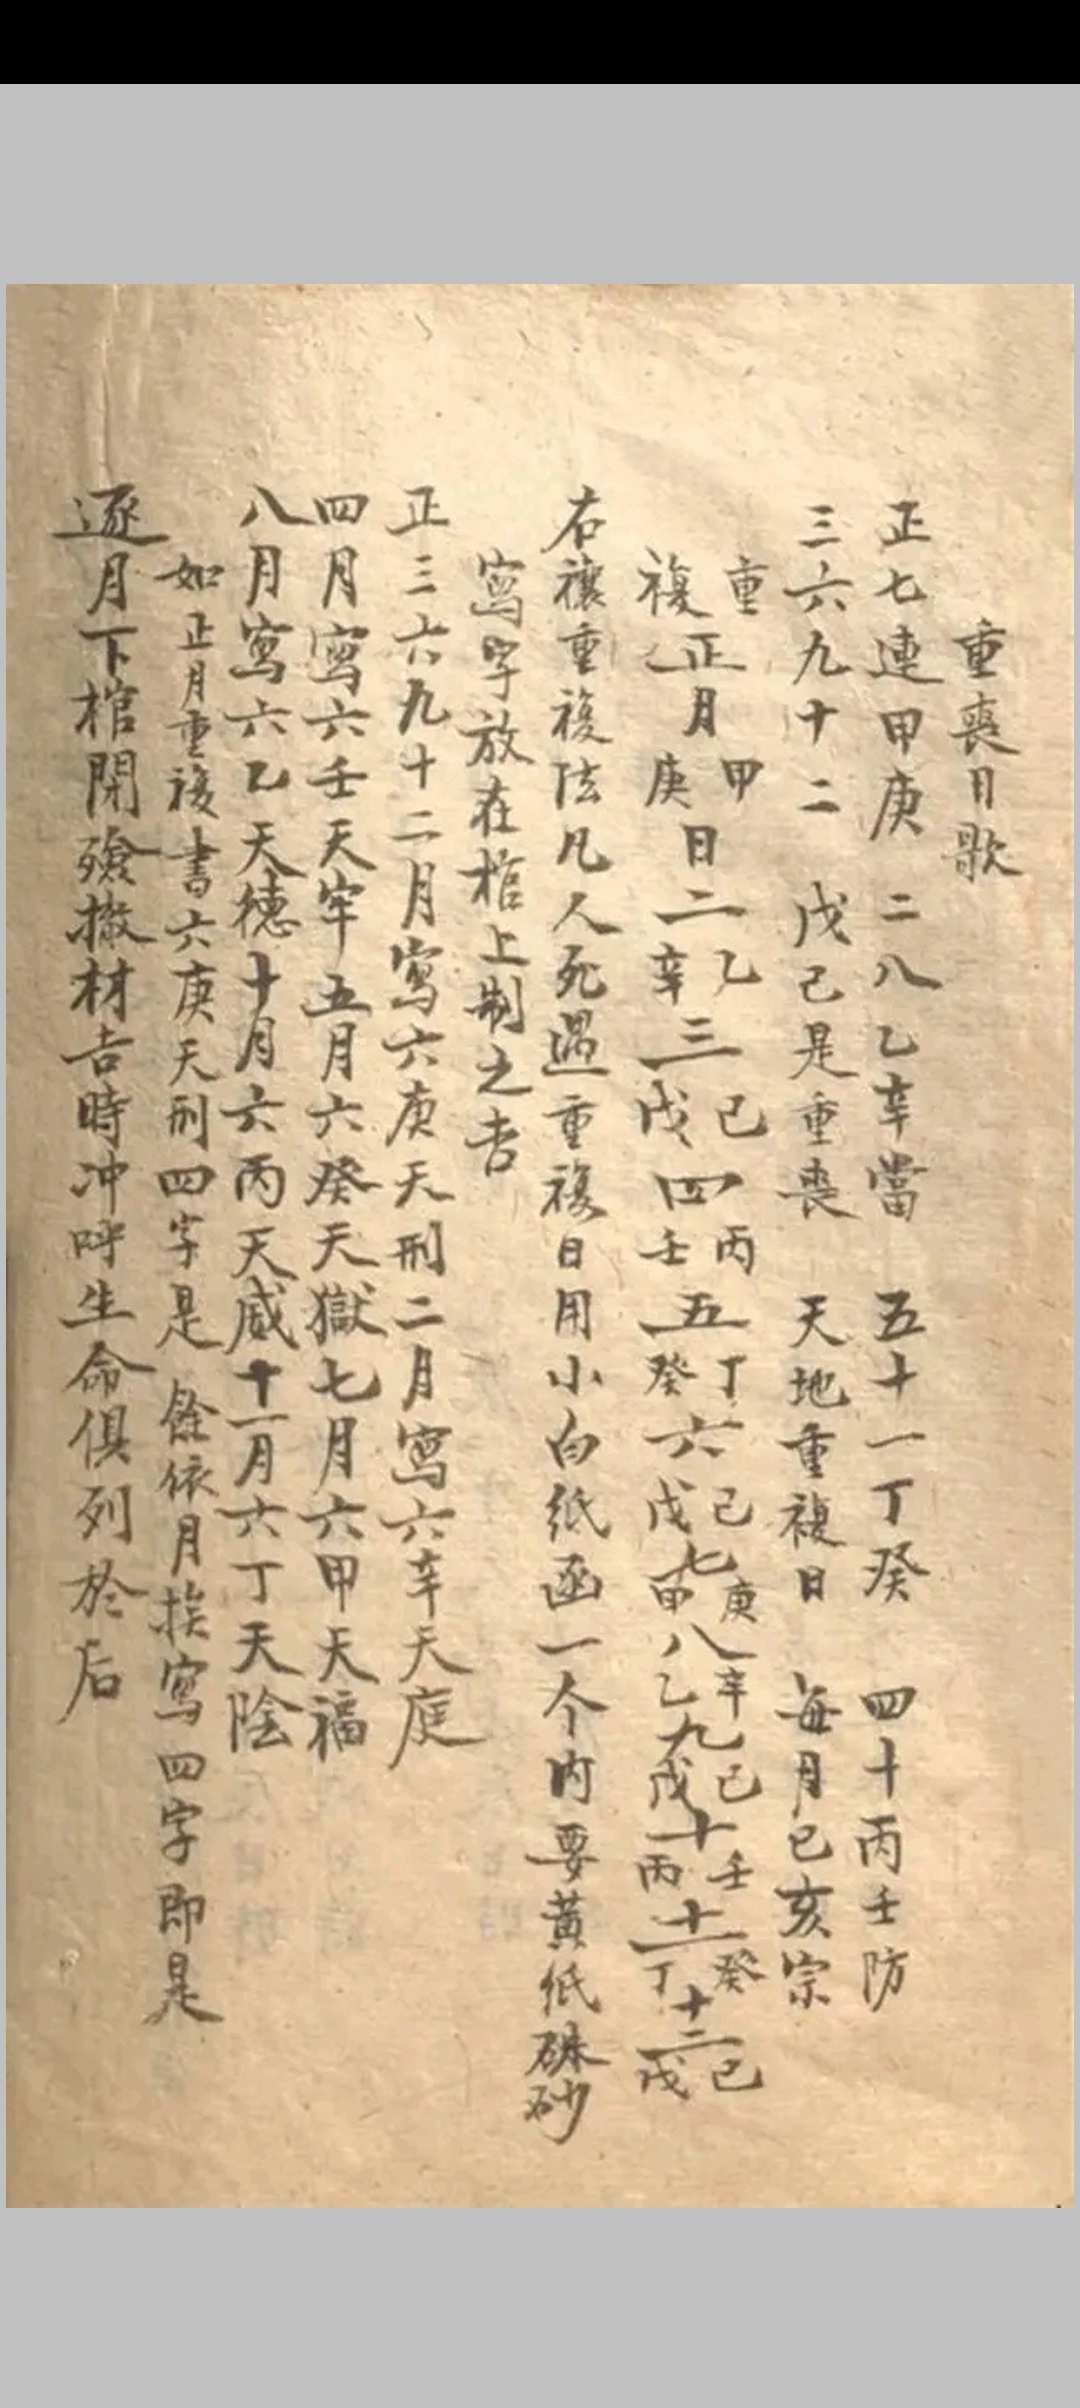 重喪日歌
正七連甲庚 二八乙辛當 五十一丁癸 四十丙壬防
三六九十二 戊己是重喪 天地重複日 每月巳亥宗
重複正月甲庚日二乙辛三己戊四丙壬五丁癸六己戊七庚甲八辛乙九己戊十壬丙十一癸丁十二己戊
右禳重複法凡人死遇重複日用小白紙函一个內要黃紙硃砂
寫字放在棺上制之吉
正三六九十二月寫六庚天刑二月寫六辛天庭
四月寫六壬天牢五月六癸天獄七月六甲天福
八月寫六乙天德十月六丙天威十一月六丁天陰
如正月重複書六庚天刑四字是 餘依月挨寫四字即是
逐月下棺閉殮撤材吉時冲呼生命俱列於后